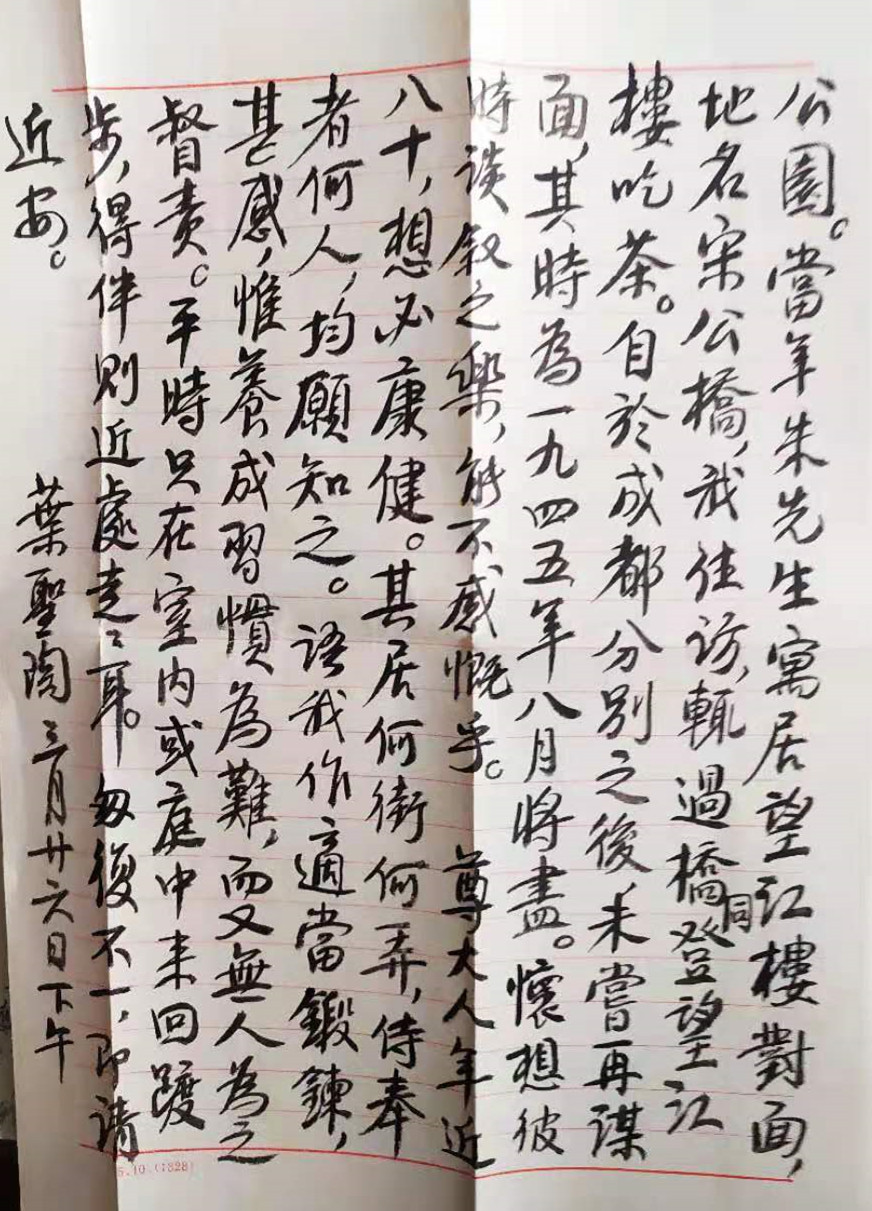 公園。當年朱先生寓居望江樓對面，
地名宋公橋，我往訪，輒過橋同登望江
樓吃茶。自於成都分別之後，未嘗再謀
面，其時為一九四五年八月將盡。懷想彼
時談敘之樂，能不感慨乎。尊大人年近
八十，想必康健。其居何街何弄，侍奉
者何人，均願知之。語我作適當鍛鍊，
甚感，惟養成習慣為難，而又無人為之
督責。平時只在室内或庭中来回踱
步，得伴則近處走走耳。匆復不一，即請
近安。
葉聖陶 三月廿六日下午
5.10.(1328)